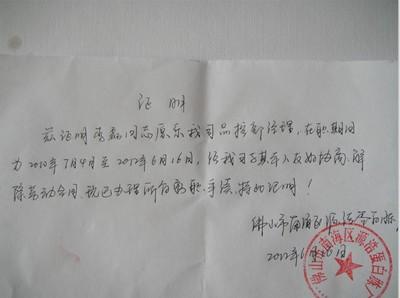 证明
兹证明 同志原系我司品 部经理,在职期间
为2010年7月4日至2012年6月16日,经我司与其本人友好协商,解
除劳动合同,现已办理所有离职手续,特此证明!
佛山市南海区源浩蛋白
2012年6月 日
佛山市南海区源浩蛋白